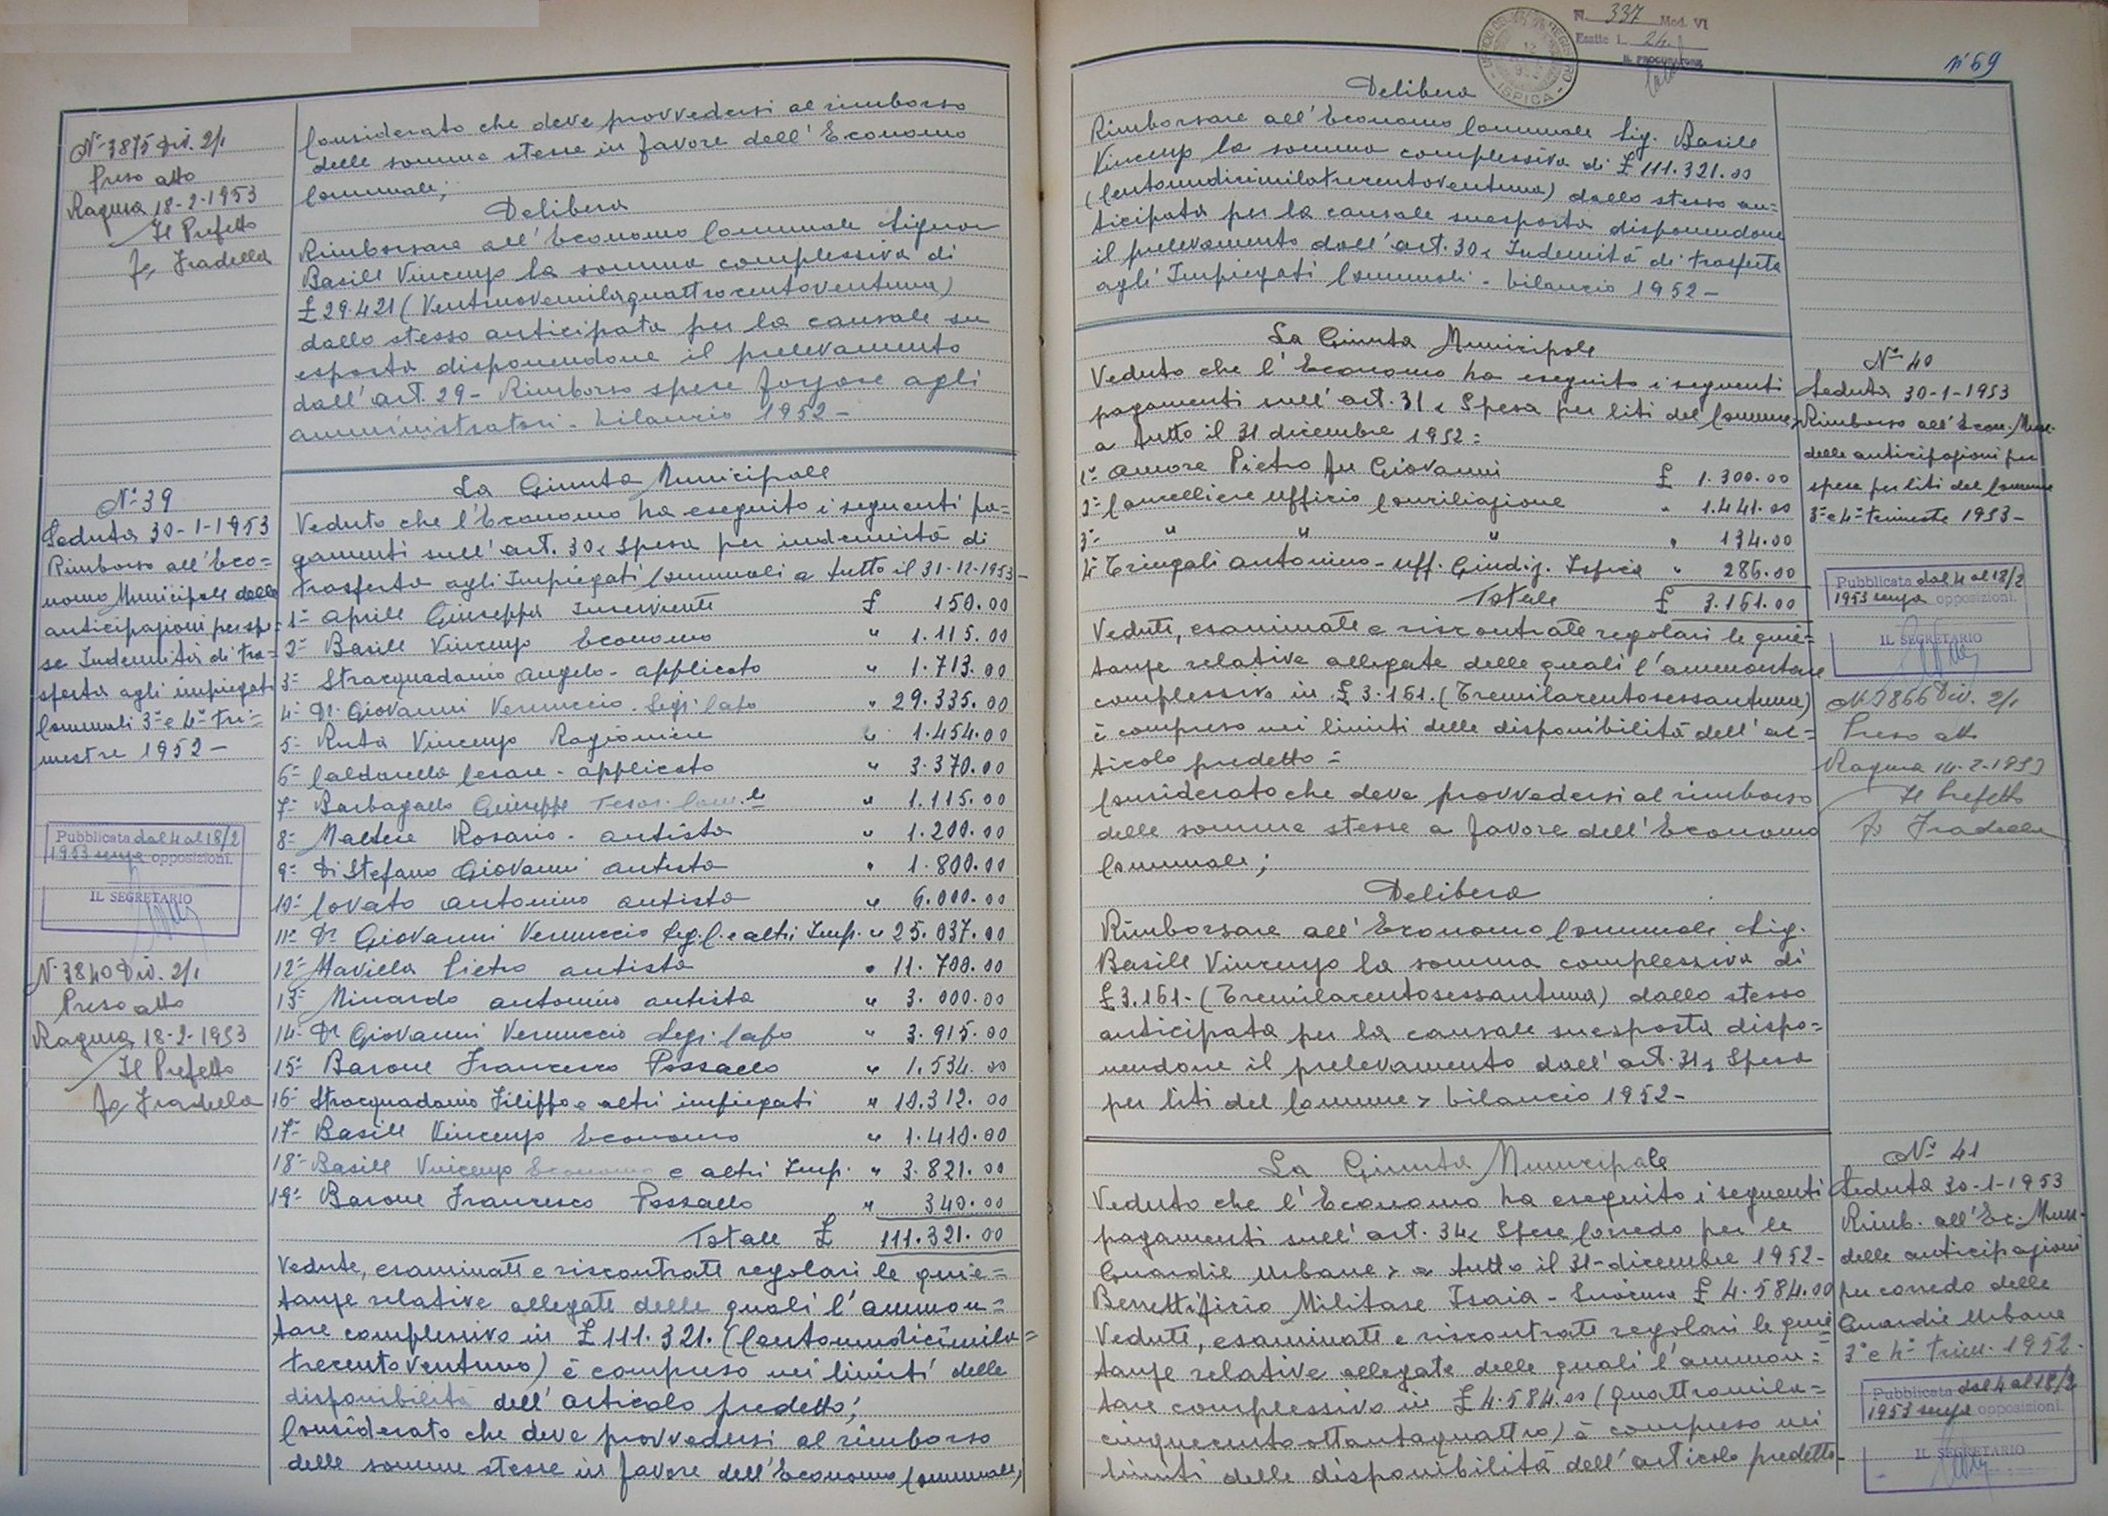 N° 3875 Div. 2/1
Preso atto
Ragusa 18-2-1953
Il Prefetto
Considerato che deve provvedersi al rimborso
delle somme stesse in favore dell'Economo
Comunale;
Delibera
Rimborsare all'Economo Comunale Signor
Basile Vincenzo la somma complessiva di
£ 29.421 (Ventinovemilaquattrocentoventuna)
dallo stesso anticipata per la causale su
esposta disponendone il prelevamento
dall'art. 29 - Rimborso spese forzose agli
amministratori - bilancio 1952 -
N° 39
Seduta 30-1-1953
Rimborso all'Eco=
nomo Municipale delle
anticipazioni per spe=
se Indennità di tra=
sferta agli impiegati
Comunali 3° e 4° tri=
mestre 1952 -
Pubblicata dal 4 al 18/2
1953 senza opposizioni.
IL SEGRETARIO
N° 3840 Div. 2/1
Preso atto
Ragusa 18-2-1953
Il Prefetto
La Giunta Municipale
Veduto che l'Economo ha eseguito i seguenti pa=
gamenti sull'art. 30 « Spesa per indennità di
trasferta agli Impiegati Comunali a tutto il 31-12-1953 -
1° Aprile Giuseppa Inserviente £ 150.00
2° Basile Vincenzo Economo " 1.115.00
3° Stracquadanio Angelo - applicato " 1.713.00
4° Dr. Giovanni Vernuccio - Segr. Capo " 29.335.00
5° Ruta Vincenzo Ragioniere " 1.454.00
6° Caldarella Cesare - applicato " 3.370.00
7° Barbagallo Giuseppe Tesor. Com.le " 1.115.00
8° Maltese Rosario - autista " 1.200.00
9° Di Stefano Giovanni autista " 1.800.00
10° Lovato Antonino autista " 6.000.00
11° Dr Giovanni Vernuccio Seg. C. e altri Imp. " 25.037.00
12° Maviela Pietro autista " 11.700.00
13° Minardo Antonino autista " 3.000.00
14° Dr Giovanni Vernuccio Segr. Capo " 3.915.00
15° Barone Francesco Possallo " 1.534.00
16° Stracquadanio Filippo e altri impiegati " 10.312.00
17° Basile Vincenzo Economo " 1.410.00
18° Basile Vincenzo Economo e altri Imp. " 3.821.00
19° Barone Francesco Possallo " 340.00
Totale £ 111.321.00
Vedute, esaminate e riscontrate regolari le quie=
tanze relative allegate delle quali l'ammon=
tare complessivo in £ 111.321. (Centoundicimila=
trecentoventuno) è compreso nei limiti delle
disponibilità dell'articolo predetto;
Considerato che deve provvedersi al rimborso
delle somme stesse in favore dell'Economo Comunale;
UFFICIO DEL REGISTRO
ISPICA
N. 337 Mod. VI
Esatte L. 24
IL PROCURATORE
n° 69
Delibera
Rimborsare all'Economo Comunale Sig. Basile
Vincenzo la somma complessiva di £ 111.321.00
(Centoundicimilatrecentoventuna) dallo stesso an=
ticipata per la causale suesposta disponendone
il prelevamento dall'art. 30 « Indennità di trasferta
agli Impiegati Comunali - bilancio 1952 -
La Giunta Municipale
Veduto che l'Economo ha eseguito i seguenti
pagamenti sull'art. 31 « Spesa per liti del Comune »
a tutto il 31 dicembre 1952 =
1° Amore Pietro fu Giovanni £ 1.300.00
2° Cancelliere Ufficio Conciliazione " 1.441.00
3° " " " " 134.00
4° Tringali Antonino - Uff. Giudiz. Ispica " 286.00
Totale £ 3.161.00
Vedute, esaminate e riscontrate regolari le quie=
tanze relative allegate delle quali l'ammontare
complessivo in £ 3.161. (Tremilacentosessantuna)
è compreso nei limiti delle disponibilità dell'ar=
ticolo predetto =
Considerato che deve provvedersi al rimborso
delle somme stesse a favore dell'Economo
Comunale;
Delibera
Rimborsare all'Economo Comunale Sig.
Basile Vincenzo la somma complessiva di
£ 3.161. (Tremilacentosessantuna) dallo stesso
anticipata per la causale suesposta dispo=
nendone il prelevamento dall'art. 31 « Spesa
per liti del Comune » bilancio 1952 -
N° 40
Seduta 30-1-1953
Rimborso all'Econ. Mun.
delle anticipazioni per
spese per liti del Comune
3° e 4° trimestre 1953 -
Pubblicata dal 4 al 18/2
1953 senza opposizioni.
IL SEGRETARIO
N° 3866 Div. 2/1
Preso atto
Ragusa 14-2-1953
Il Prefetto
La Giunta Municipale
Veduto che l'Economo ha eseguito i seguenti
pagamenti sull'art. 34 « Spese Corredo per le
Guardie Urbane » a tutto il 31-dicembre 1952 -
Berrettificio Militare Isaia - Siracusa £ 4.584.00
Vedute, esaminate e riscontrate regolari le quie=
tanze relative allegate delle quali l'ammon=
tare complessivo in £ 4.584.00 (quattromila=
cinquecentoottantaquattro) è compreso nei
limiti delle disponibilità dell'articolo predetto -
N° 41
Seduta 30-1-1953
Rimb. all'Ec. Mun.
delle anticipazioni
per corredo delle
Guardie Urbane
3° e 4° trim. 1952 -
Pubblicata dal 4 al 18/2
1953 senza opposizioni.
IL SEGRETARIO